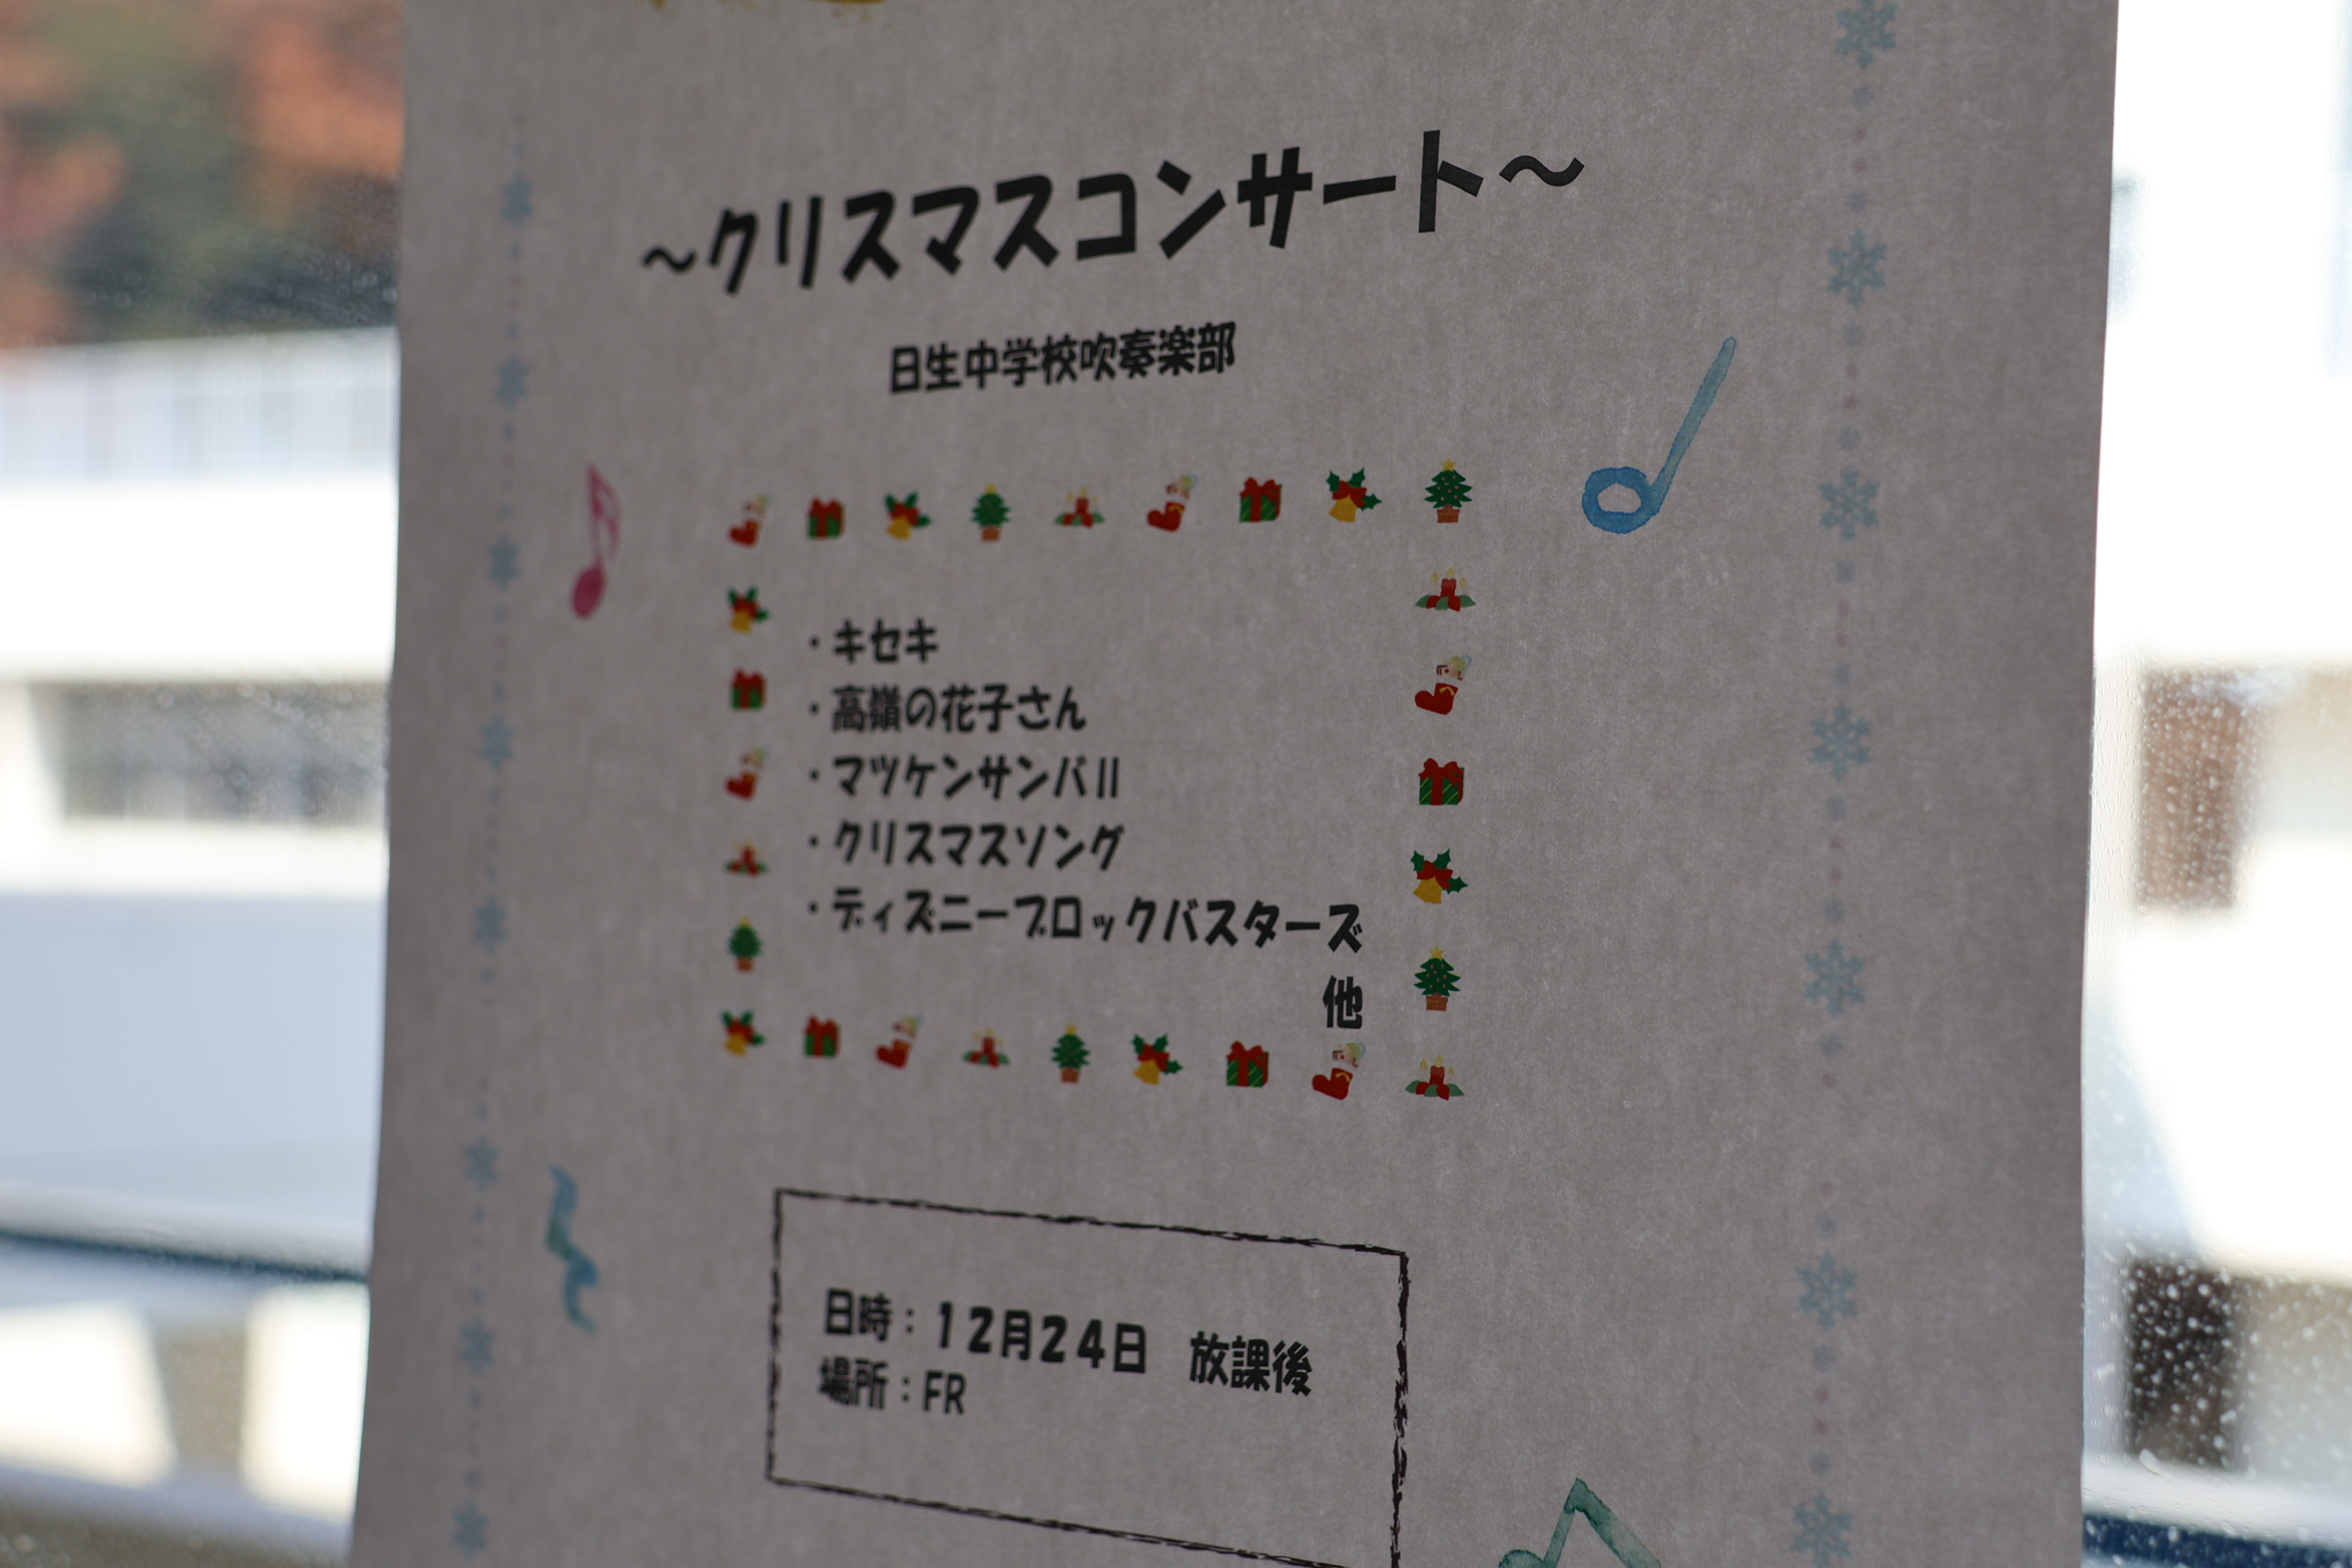 ～クリスマスコンサート～
日生中学校吹奏楽部
・キセキ
・高嶺の花子さん
・マツケンサンバⅡ
・クリスマスソング
・ディズニーブロックバスターズ
他
日時：12月24日　放課後
場所：FR